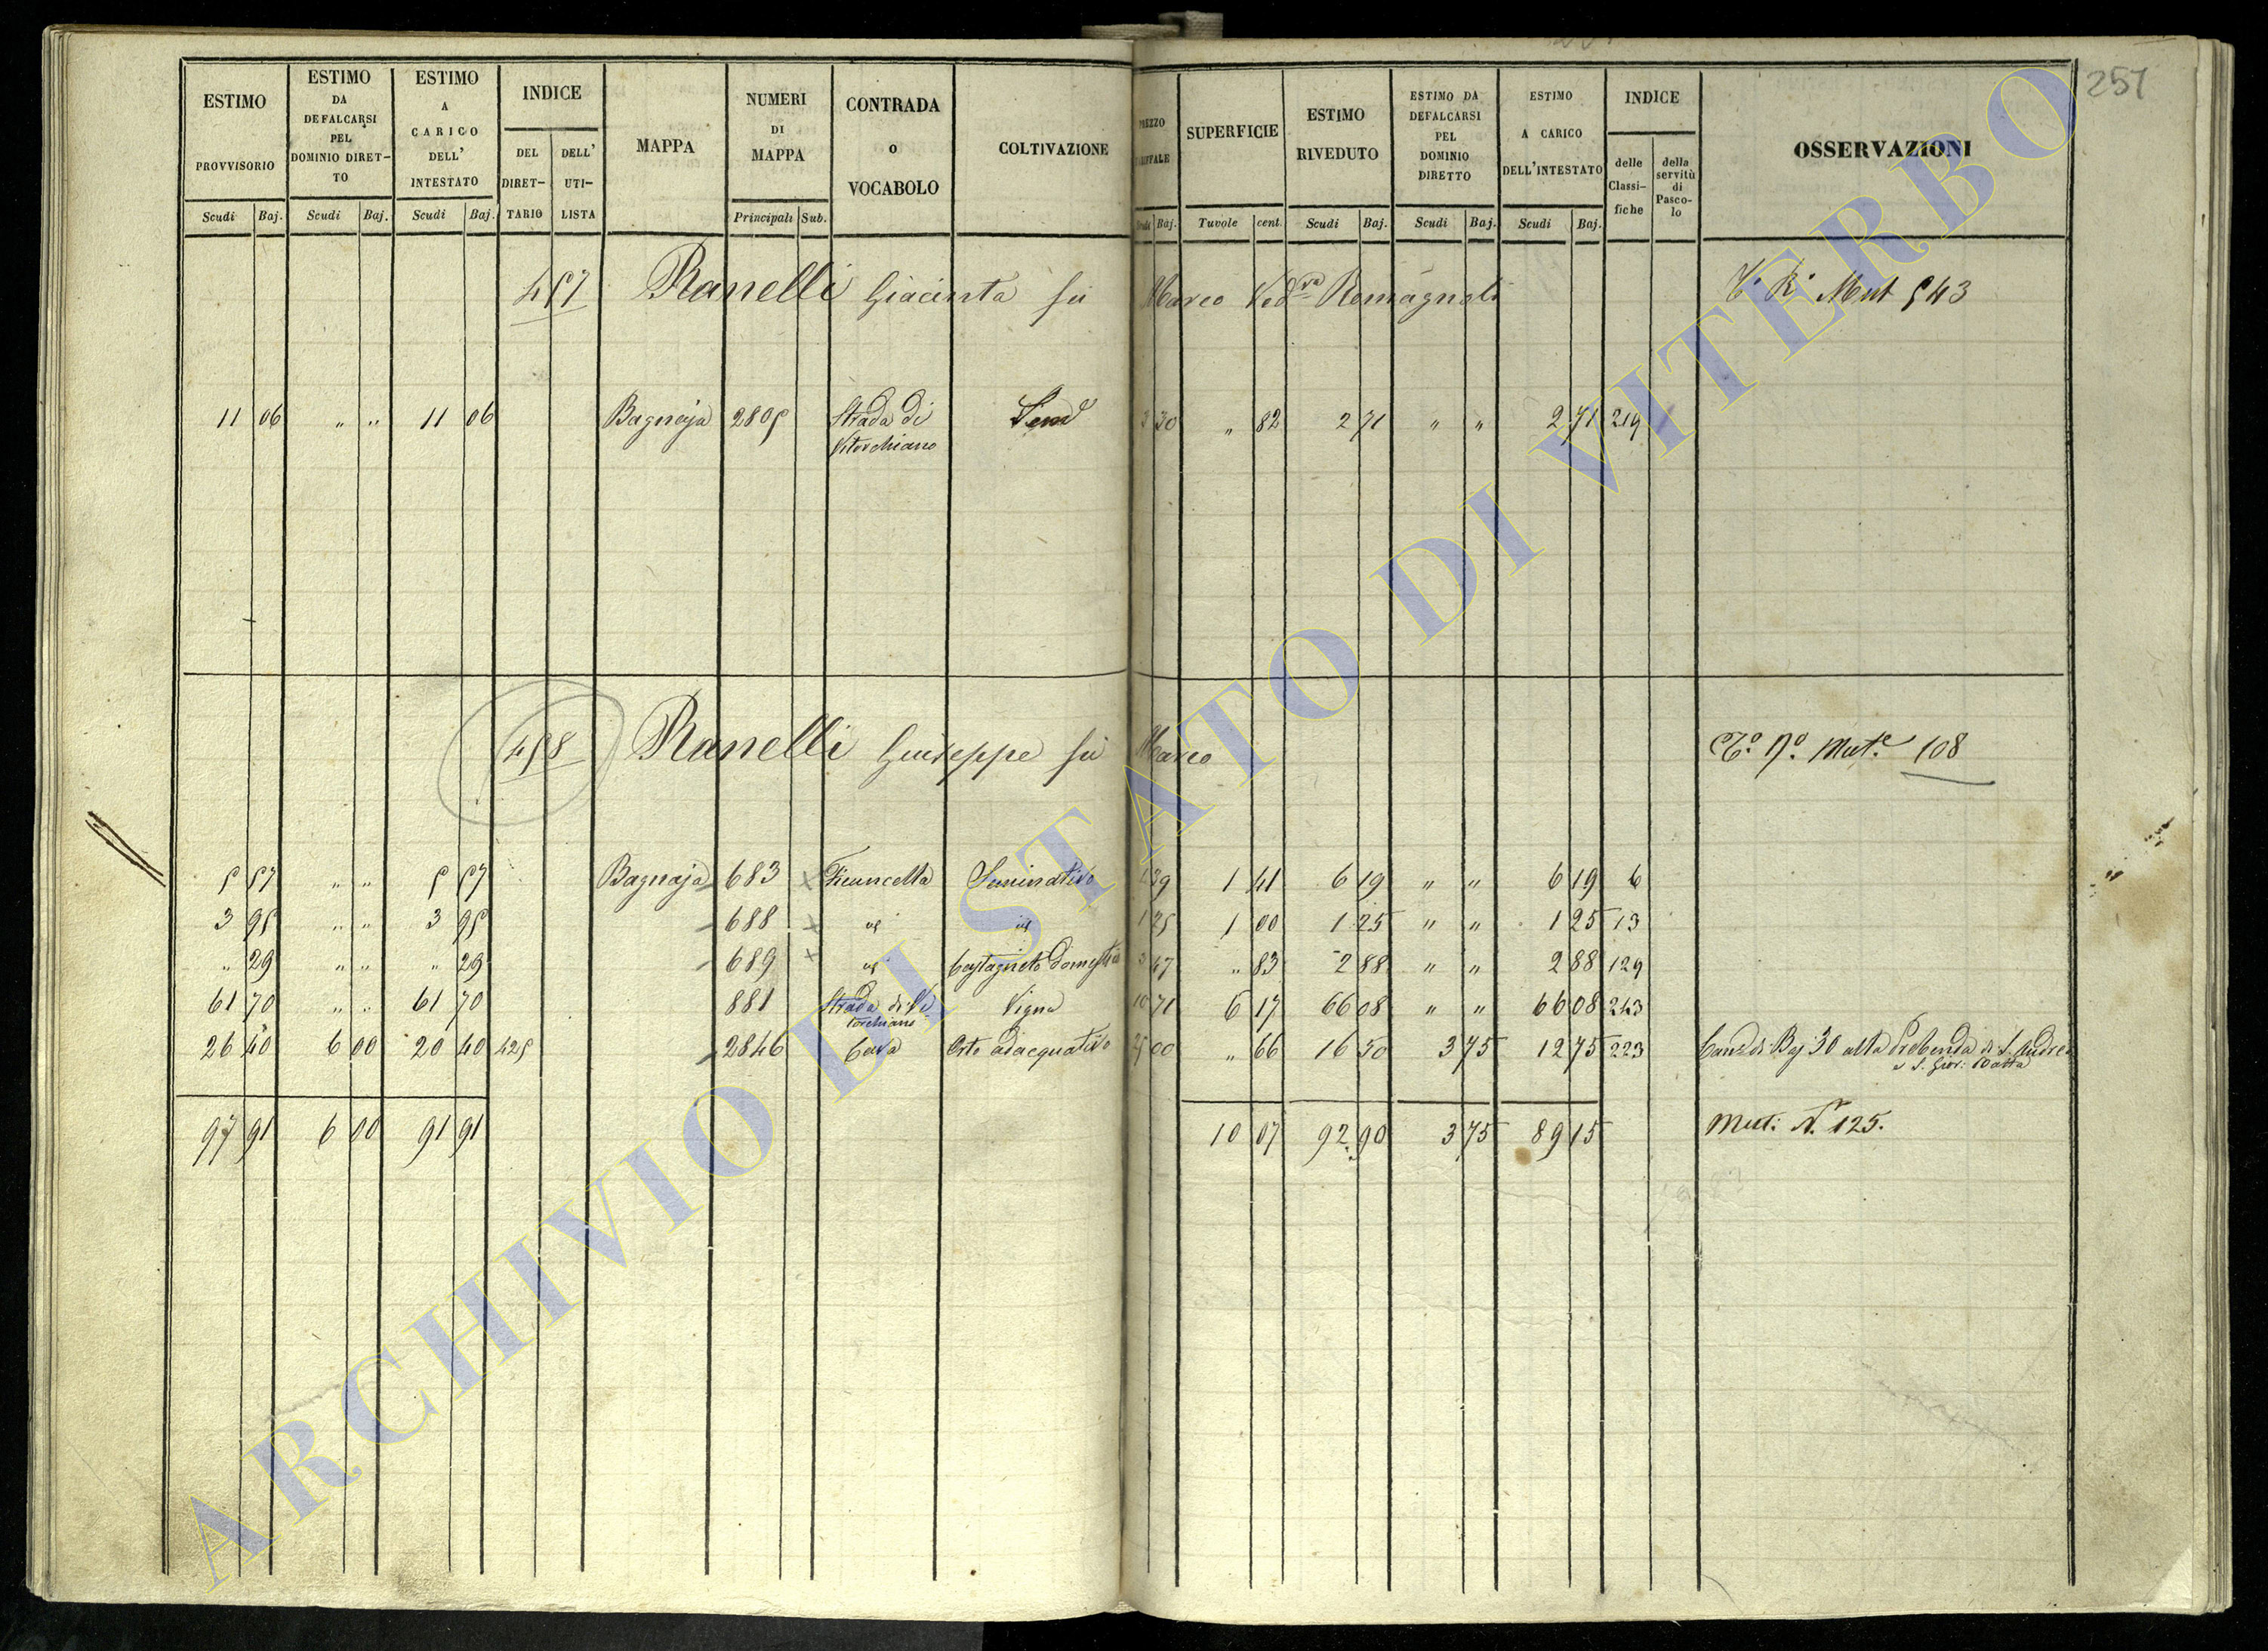 257
ESTIMO PROVVISORIO | ESTIMO DA DEFALCARSI PEL DOMINIO DIRETTO | ESTIMO A CARICO DELL' INTESTATO | INDICE | MAPPA | NUMERI DI MAPPA | CONTRADA O VOCABOLO | COLTIVAZIONE | SUPERFICIE | ESTIMO RIVEDUTO | ESTIMO DA DEFALCARSI PEL DOMINIO DIRETTO | ESTIMO A CARICO DELL'INTESTATO | INDICE | OSSERVAZIONI
DEL DIRET-TARIO | DELL' UTI-LISTA | delle Classi-fiche | della servitù di Pasco-lo
Scudi Baj. | Scudi Baj. | Scudi Baj. | Principali Sub. | Baj. | Tuvole cent. | Scudi Baj. | Scudi Baj. | Scudi Baj.
457 Ranelli Giacinta fu Marco Ved.va Romagnoli Mut 543
11 06 " " 11 06 Bagnaja 2805 Strada di Vitorchiano Sem.o 3 30 " 82 2 71 " " 2 71 219
458 Ranelli Giuseppe fu Marco Mut.e 108
5 57 " " 5 57 Bagnaja 683 Ficuncella Seminativo 4 39 1 41 6 19 " " 6 19 6
3 95 " " 3 95 688 id id 1 25 1 00 1 25 " " 1 25 13
" 29 " " " 29 689 id Castagneto domestico 3 47 " 83 2 88 " " 2 88 129
61 70 " " 61 70 881 Strada di Vitorchiano Vigna 10 71 6 17 66 08 " " 66 08 243
26 40 6 00 20 40 425 2846 Cava Orto adacquativo 25 00 " 66 16 50 3 75 12 75 223 Can.e di Baj 30 alla Prebenda di S. Andrea e S. Giov: Batta
97 91 6 00 91 91 10 07 92 90 3 75 89 15 Mut: N.º 125.
ARCHIVIO DI STATO DI VITERBO